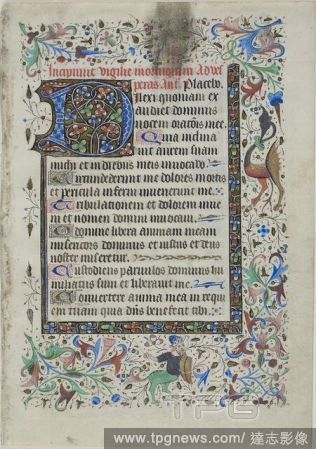 Incipiunt vigilie mortuorum Ad ves
peras Ant. Placebo.
Dilexi quoniam ex
audiet dominus
vocem orationis mee.
Quia inclina
vit aurem suam
michi et in diebus meis invocabo.
Circundederunt me dolores mortis
et pericula inferni invenerunt me.
Tribulationem et dolorem inve
ni et nomen domini invocavi.
O domine libera animam meam
misericors dominus et iustus et deus
noster miseretur.
Custodiens parvulos dominus hu
miliatus sum et liberavit me.
Convertere anima mea in requi
em tuam quia dns benefecit tibi.
TPG
www.tpgnews.com/達志影像